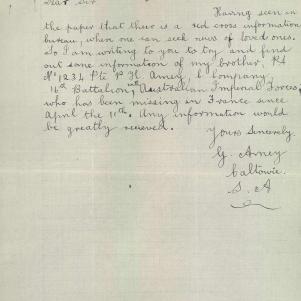 Dear Sir
Having seen in
the paper that there is a red cross information
bureau, when one can seek news of loved ones.
So I am writing to you to try and find
out some information of my brother,
No 1234 Pte P. H. Amey, Company,
14th Battalion, Australian Imperial Forces,
who has been missing in France since
April the 11th. Any information would
be greatly recieved.
Yours Sincerely
G. Amey
Caltowie
S. A